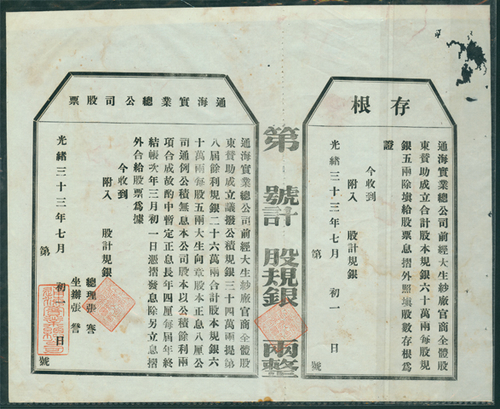 存根
通海實業總公司前經大生紗廠官商全體股
東贊助成立合計股本規銀六十萬兩每股規
銀五兩除填給股票息摺外照填股數存根為
證
今收到
附入 股計規銀
光緒三十三年七月 初一 日
第 號
第 號計 股規銀 兩整
通海實業總公司股票
通海實業總公司前經大生紗廠官商全體股
東贊助成立議撥公積規銀三十四萬兩提第
八屆餘利規銀二十六萬兩合計股本規銀六
十萬兩每股五兩大生向章股本正息八厘公
司通例公積無息本公司股本以公積餘利兩
項合成故酌中暫定正息長年四厘每屆年終
結帳次年三月初一日憑摺發息除另立息摺
外合給股票為據
今收到
附入 股計規銀
總理張謇
坐辦張詧
光緒三十三年七月 初一日
第 號